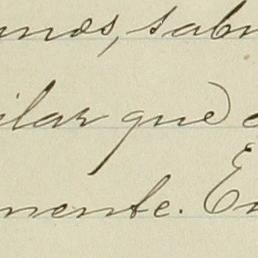 mos, sabr
ilar que
mente. En